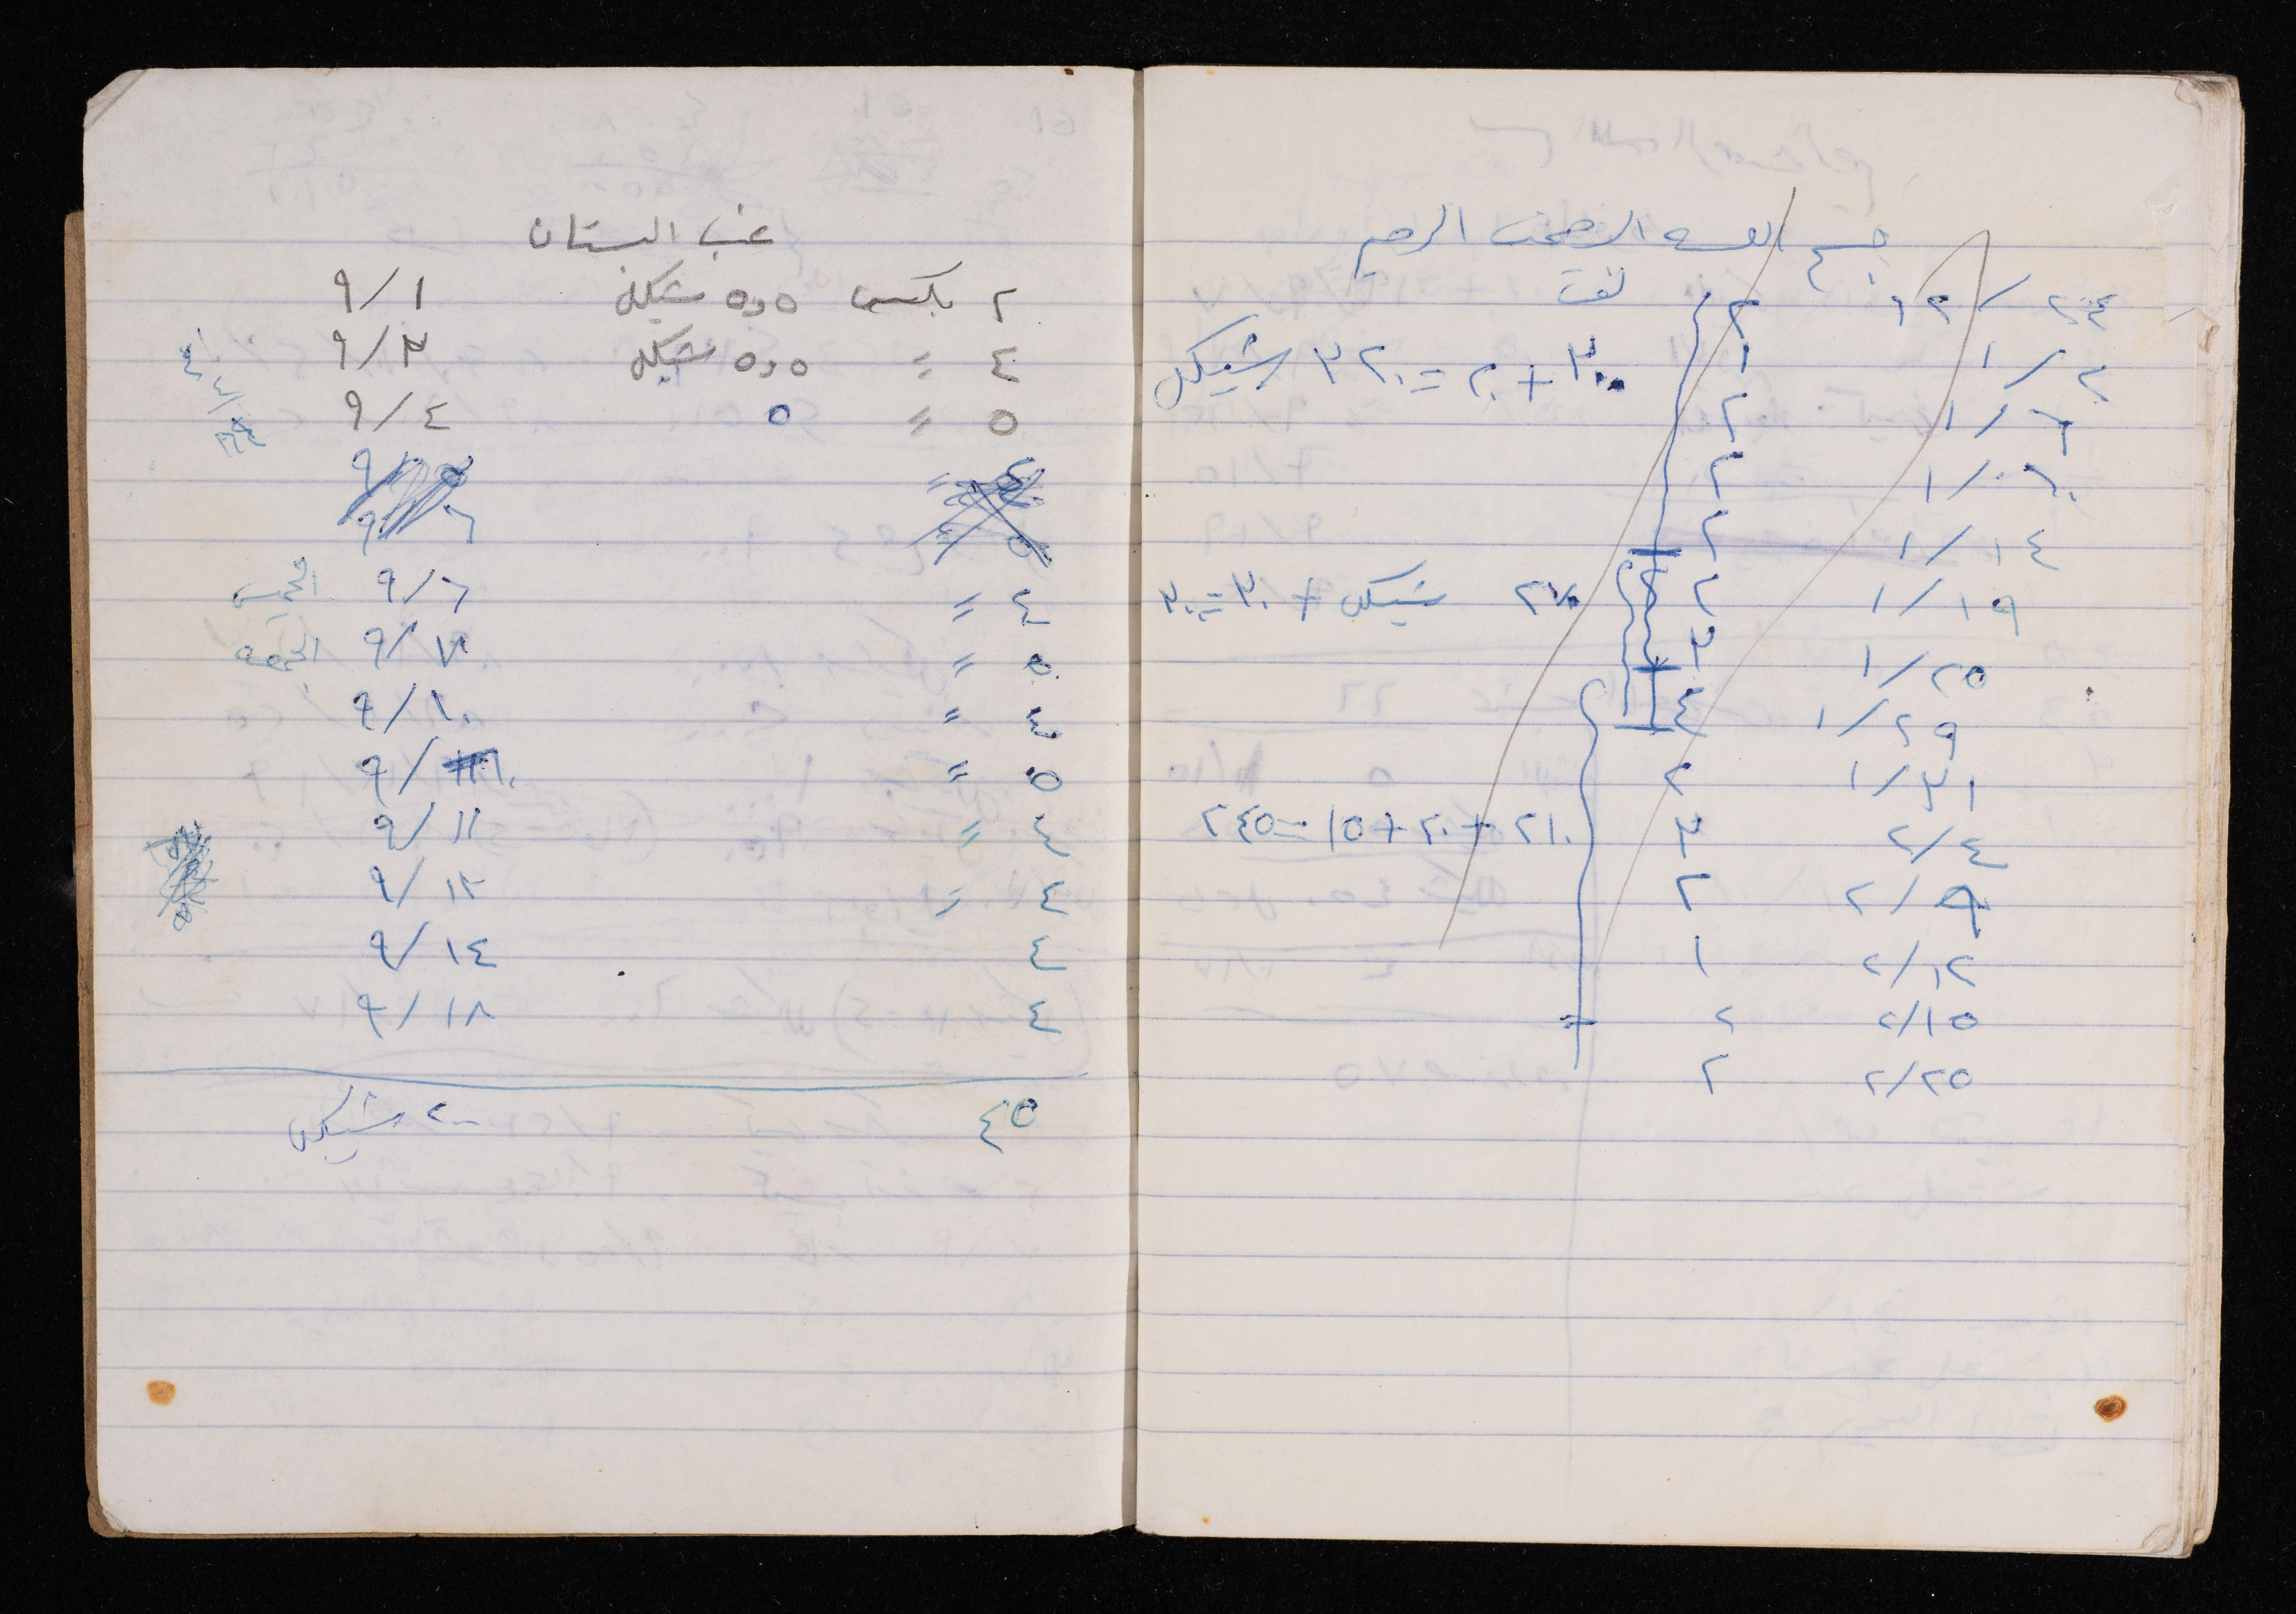 بسم الله الرحمن الرحيم
لفت
١٢/٢٤ ٢
١/٢ ١ ٣٠٠ + ٢٠ = ٣٢٠ شيكل
١/٦ ٢
١/١٠ ٢
١/١٤ ٢
١/١٩ ٢ ٢٧٠ شيكل + ٣٠ = ٣٠٠
١/٢٥ ٣
١/٢٩ ٤
١/٣١ ٢
٢/٤ ٣ ٢١٠ + ٢٠ + ١٥ = ٢٤٥
٢/٩ ٢
٢/١٢ ١
٢/١٥ ٢ =
٢/٢٥ ٢
عنب البستان
٢ بكس ٥٫٥ شيكل ٩/١
٤ = ٥٫٥ شيكل ٩/٣
٥ = ٥ ٩/٤
٤ = ٩/٥
٥ = ٩/٦
٤ = ٩/٦ الخميس
٥ = ٩/٧ الجمعه
٤ = ٩/١٠
٥ = ٩/
٤ = ٩/١١
٤ = ٩/١٢
٤ ٩/١٤
٤ ٩/١٨
٤٥ ٢٠٠ شيكل